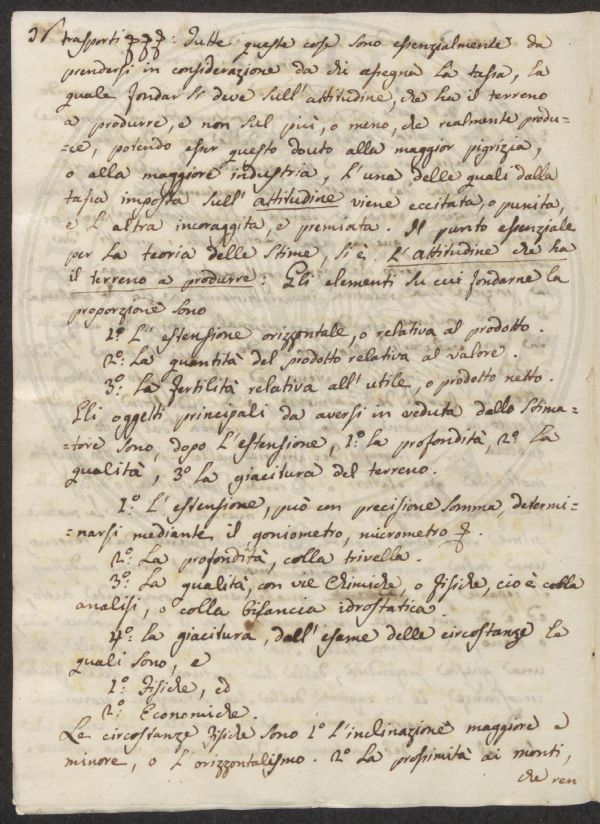 36
trasporti &&&: Tutte queste cose sono essenzialmente da
prendersi in considerazione da chi assegna la tassa, la
quale fondar si deve sull' attitudine, che ha il terreno
a produrre, e non sul più, o meno, che realmente produ-=
=ce, potendo esser questo dovuto alla maggior pigrizia,
o alla maggiore industria, l' una delle quali dalla
tassa imposta sull' attitudine viene eccitata, o punita,
e l' altra incoraggita, e premiata. Il punto essenziale
per la teoria delle stime, si è, l' attitudine che ha
il terreno a produrre: Gli elementi su cui fondarne la
proporzione sono
1.º L' estensione orizzontale, o relativa al prodotto.
2.º La quantità del prodotto relativa al valore.
3.º La fertilità relativa all' utile, o prodotto netto.
Gli oggetti principali da aversi in veduta dallo stima-
=tore sono, dopo l' estensione, 1.º la profondità, 2.º La
qualità, 3.º La giacitura del terreno.
1.º L' estensione, può con precisione somma, determi-=
=narsi mediante il goniometro, micrometro &.
2.º La profondità, colla trivella.
3.º La qualità, con vie Chimiche, o fisiche, cioè colla
analisi, o colla bilancia idrostatica.
4.º La giacitura, dall' esame delle circostanze la
quali sono, e
1.º Fisiche, ed
2.º Economiche.
Le circostanze fisiche sono 1.º L' inclinazione maggiore o
minore, o l' orizzontalismo. 2.º La prossimità ai monti,
che ren